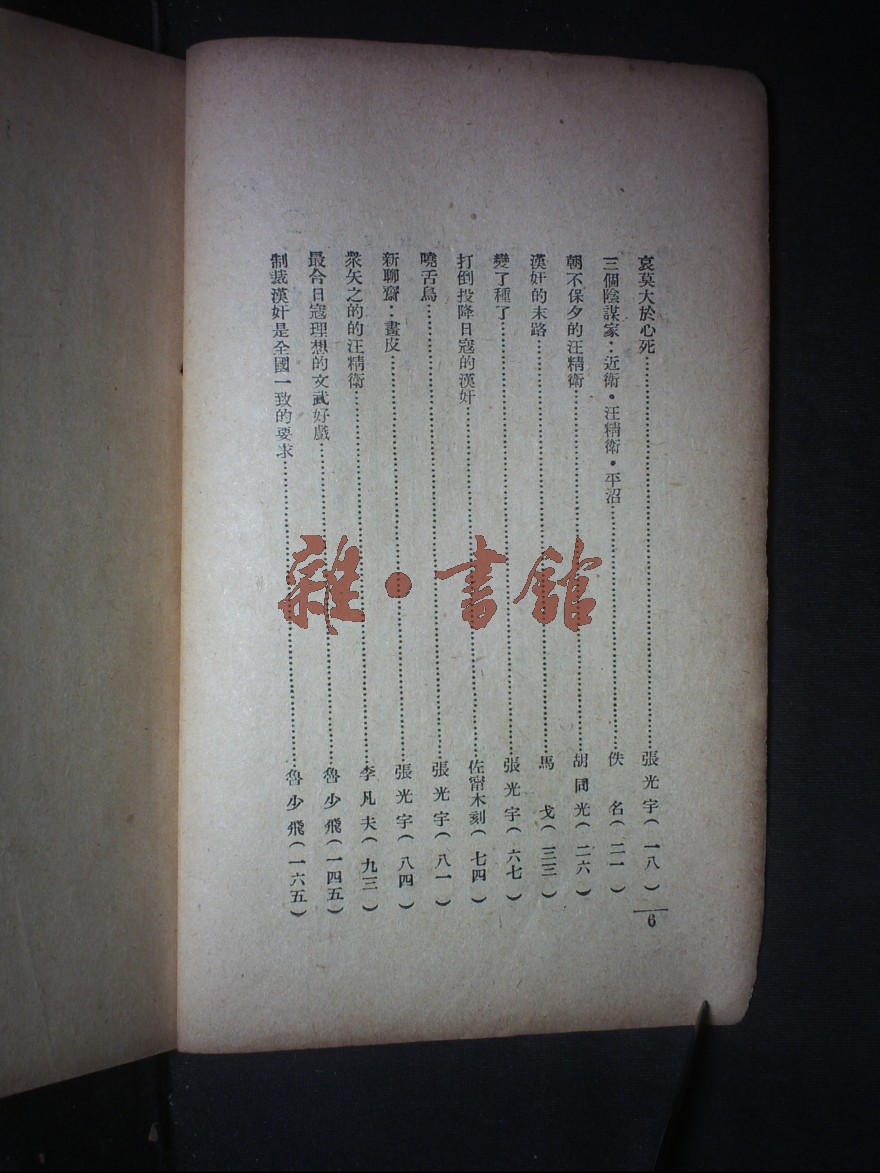 哀莫大於心死……張光宇(一八)
三個陰謀家：近衛·汪精衛·平沼……佚名(二一)
朝不保夕的汪精衛……胡同光(二六)
漢奸的末路……馬戈(三三)
變了種了……張光宇(六七)
打倒投降日寇的漢奸……佐甯木刻(七四)
嘵舌鳥……張光宇(八一)
新聊齋：畫皮……張光宇(八四)
衆矢之的的汪精衛……李凡夫(九三)
最合日寇理想的文武好戲……魯少飛(一四五)
制裁漢奸是全國一致的要求……魯少飛(一六五)
6
雜·書館